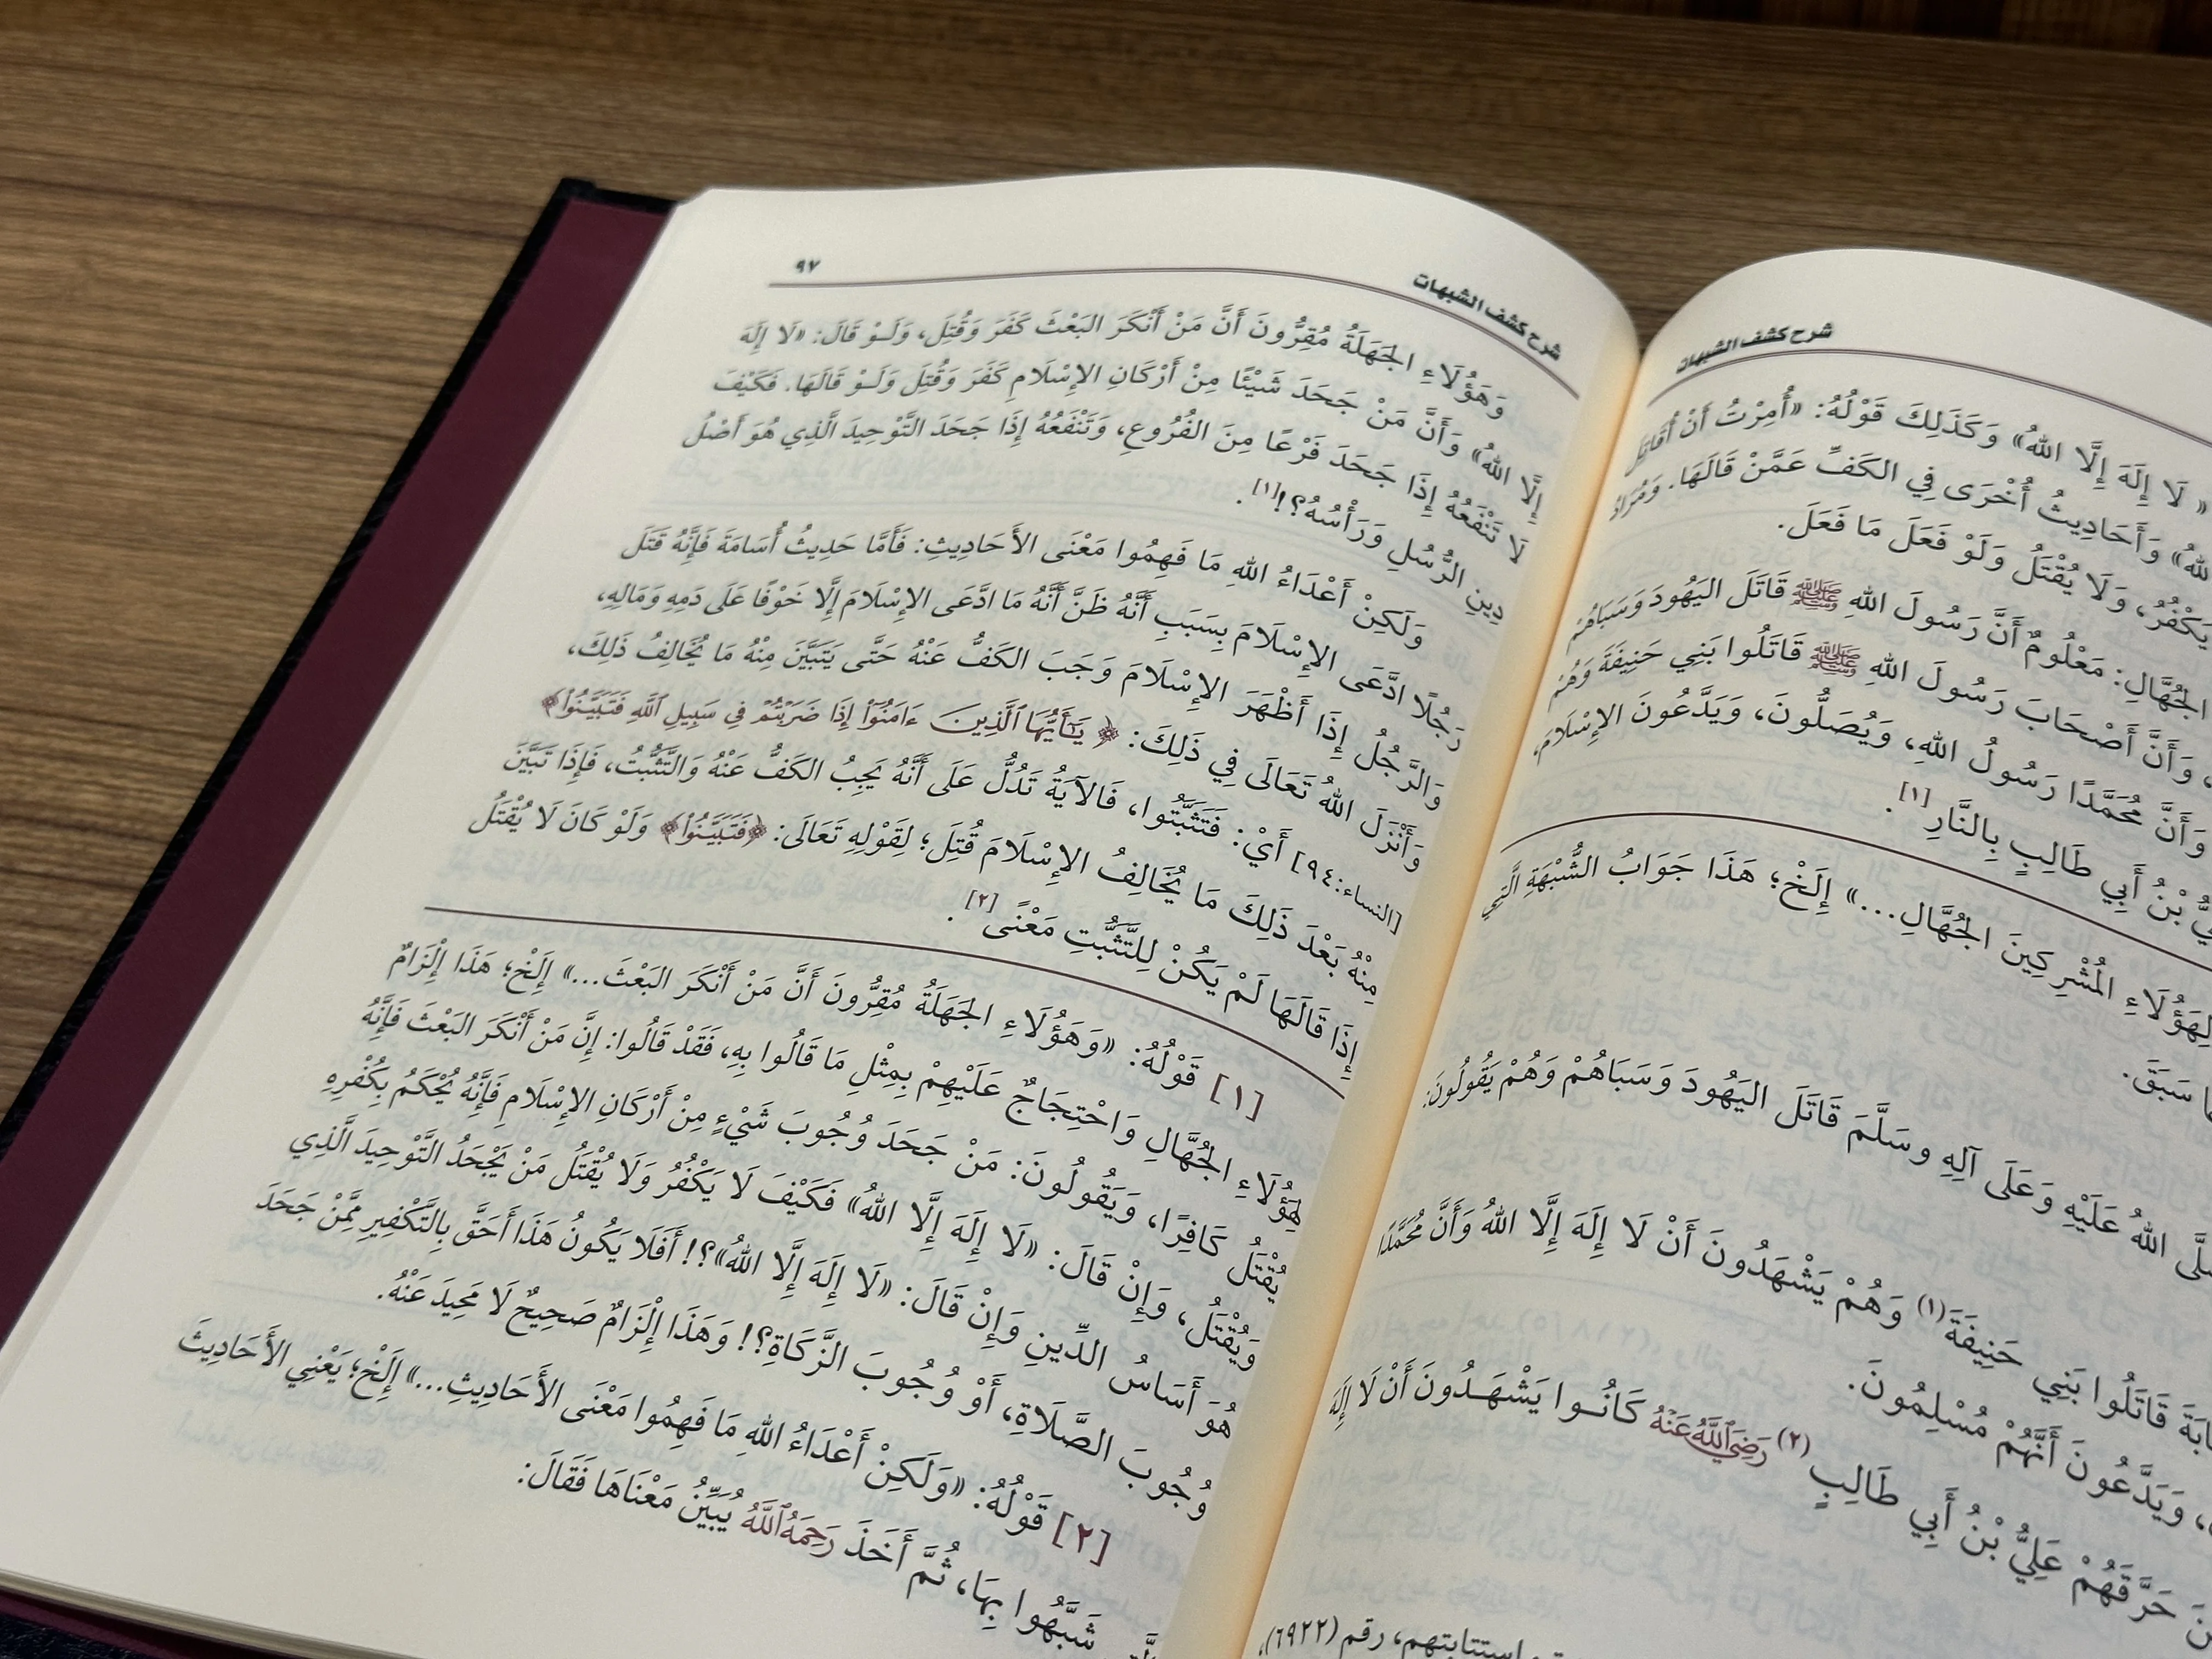 شرح كشف الشبهات
« لَا إِلَهَ إِلَّا اللهُ» وَكَذَلِكَ قَوْلُهُ: «أُمِرْتُ أَنْ أُقَاتِلَ
اللهُ» وَأَحَادِيثُ أُخْرَى فِي الكَفِّ عَمَّنْ قَالَهَا. وَمُرَادُ
يَكْفُرُ، وَلَا يُقْتَلُ وَلَوْ فَعَلَ مَا فَعَلَ.
الجُهَّالِ: مَعْلُومٌ أَنَّ رَسُولَ اللهِ ﷺ قَاتَلَ اليَهُودَ وَسَبَاهُمْ
، وَأَنَّ أَصْحَابَ رَسُولَ اللهِ ﷺ قَاتَلُوا بَنِي حَنِيفَةَ وَهُمْ
وَأَنَّ مُحَمَّدًا رَسُولُ اللهِ، وَيُصَلُّونَ، وَيَدَّعُونَ الإِسْلَامَ،
بْنُ أَبِي طَالِبٍ بِالنَّارِ[١].
لِهَؤُلَاءِ المُشْرِكِينَ الجُهَّالِ...» إِلَخْ؛ هَذَا جَوَابُ الشُّبْهَةِ الَّتِي
سَبَقَ.
اللهُ عَلَيْهِ وَعَلَى آلِهِ وسَلَّمَ قَاتَلَ اليَهُودَ وَسَبَاهُمْ وَهُمْ يَقُولُونَ:
قَاتَلُوا بَنِي حَنِيفَةَ(١) وَهُمْ يَشْهَدُونَ أَنْ لَا إِلَهَ إِلَّا اللهُ وَأَنَّ مُحَمَّدًا
، وَيَدَّعُونَ أَنَّهُمْ مُسْلِمُونَ.
حَرَّقَهُمْ عَلِيُّ بْنُ أَبِي طَالِبٍ(٢) رَضِيَ اللَّهُ عَنْهُ كَانُوا يَشْهَدُونَ أَنْ لَا إِلَهَ
استتابتهم، رقم (٦٩٢٢).
شرح كشف الشبهات ٩٧
وَهَؤُلَاءِ الجَهَلَةُ مُقِرُّونَ أَنَّ مَنْ أَنْكَرَ البَعْثَ كَفَرَ وَقُتِلَ، وَلَوْ قَالَ: «لَا إِلَهَ
إِلَّا اللهُ» وَأَنَّ مَنْ جَحَدَ شَيْئًا مِنْ أَرْكَانِ الإِسْلَامِ كَفَرَ وَقُتِلَ وَلَوْ قَالَهَا. فَكَيْفَ
لَا تَنْفَعُهُ إِذَا جَحَدَ فَرْعًا مِنَ الفُرُوعِ، وَتَنْفَعُهُ إِذَا جَحَدَ التَّوْحِيدَ الَّذِي هُوَ أَصْلُ
دِينِ الرُّسُلِ وَرَأْسُهُ؟![١].
وَلَكِنْ أَعْدَاءُ اللهِ مَا فَهِمُوا مَعْنَى الأَحَادِيثِ: فَأَمَّا حَدِيثُ أُسَامَةَ فَإِنَّهُ قَتَلَ
رَجُلًا ادَّعَى الإِسْلَامَ بِسَبَبِ أَنَّهُ ظَنَّ أَنَّهُ مَا ادَّعَى الإِسْلَامَ إِلَّا خَوْفًا عَلَى دَمِهِ وَمَالِهِ،
وَالرَّجُلُ إِذَا أَظْهَرَ الإِسْلَامَ وَجَبَ الكَفُّ عَنْهُ حَتَّى يَتَبَيَّنَ مِنْهُ مَا يُخَالِفُ ذَلِكَ،
وَأَنْزَلَ اللهُ تَعَالَى فِي ذَلِكَ: ﴿ يَٰٓأَيُّهَا ٱلَّذِينَ ءَامَنُوٓا۟ إِذَا ضَرَبْتُمْ فِي سَبِيلِ ٱللَّهِ فَتَبَيَّنُوا۟﴾
[النساء:٩٤] أَيْ: فَتَثَبَّتُوا، فَالآيَةُ تَدُلُّ عَلَى أَنَّهُ يَجِبُ الكَفُّ عَنْهُ وَالتَّثَبُّتُ، فَإِذَا تَبَيَّنَ
مِنْهُ بَعْدَ ذَلِكَ مَا يُخَالِفُ الإِسْلَامَ قُتِلَ؛ لِقَوْلِهِ تَعَالَى: ﴿فَتَبَيَّنُوا۟﴾ وَلَوْ كَانَ لَا يُقْتَلُ
إِذَا قَالَهَا لَمْ يَكُنْ لِلتَّثَبُّتِ مَعْنًى[٢].
[١] قَوْلُهُ: «وَهَؤُلَاءِ الجَهَلَةُ مُقِرُّونَ أَنَّ مَنْ أَنْكَرَ البَعْثَ...» إِلَخْ؛ هَذَا إِلْزَامٌ
لِهَؤُلَاءِ الجُهَّالِ وَاحْتِجَاجٌ عَلَيْهِمْ بِمِثْلِ مَا قَالُوا بِهِ، فَقَدْ قَالُوا: إِنَّ مَنْ أَنْكَرَ البَعْثَ فَإِنَّهُ
يُقْتَلُ كَافِرًا، وَيَقُولُونَ: مَنْ جَحَدَ وُجُوبَ شَيْءٍ مِنْ أَرْكَانِ الإِسْلَامِ فَإِنَّهُ يُحْكَمُ بِكُفْرِهِ
وَيُقْتَلُ، وَإِنْ قَالَ: «لَا إِلَهَ إِلَّا اللهُ» فَكَيْفَ لَا يَكْفُرُ وَلَا يُقْتَلُ مَنْ يَجْحَدُ التَّوْحِيدَ الَّذِي
هُوَ أَسَاسُ الدِّينِ وَإِنْ قَالَ: «لَا إِلَهَ إِلَّا اللهُ»؟! أَفَلَا يَكُونُ هَذَا أَحَقَّ بِالتَّكْفِيرِ مِمَّنْ جَحَدَ
وُجُوبَ الصَّلَاةِ، أَوْ وُجُوبَ الزَّكَاةِ؟! وَهَذَا إِلْزَامٌ صَحِيحٌ لَا مَحِيدَ عَنْهُ.
[٢] قَوْلُهُ: «وَلَكِنْ أَعْدَاءُ اللهِ مَا فَهِمُوا مَعْنَى الأَحَادِيثِ...» إِلَخْ؛ يَعْنِي الأَحَادِيثَ
شَبَّهُوا بِهَا، ثُمَّ أَخَذَ رَحِمَهُ اللَّهُ يُبَيِّنُ مَعْنَاهَا فَقَالَ: